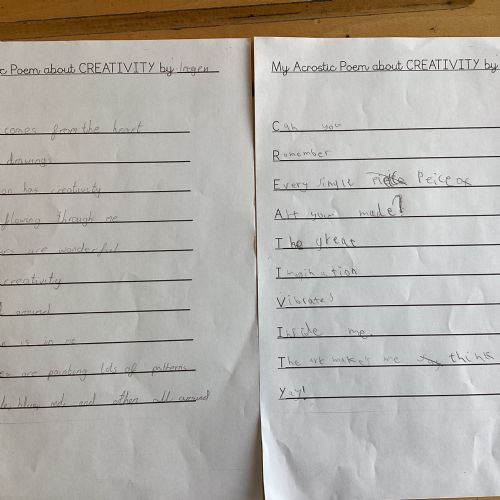 c Poem about CREATIVITY by Imogen
comes from the heart
drawings
on has creativity
flowing through me
urs are wonderful
creativity
around
n is in me
es are painting lots of patterns
blue, red and other all around
My Acrostic Poem about CREATIVITY by
Can you
Remember
Every single Peice of
Art your made?
The great
Imgination
Vibrates
Inside me
The art makes me think
Yay!